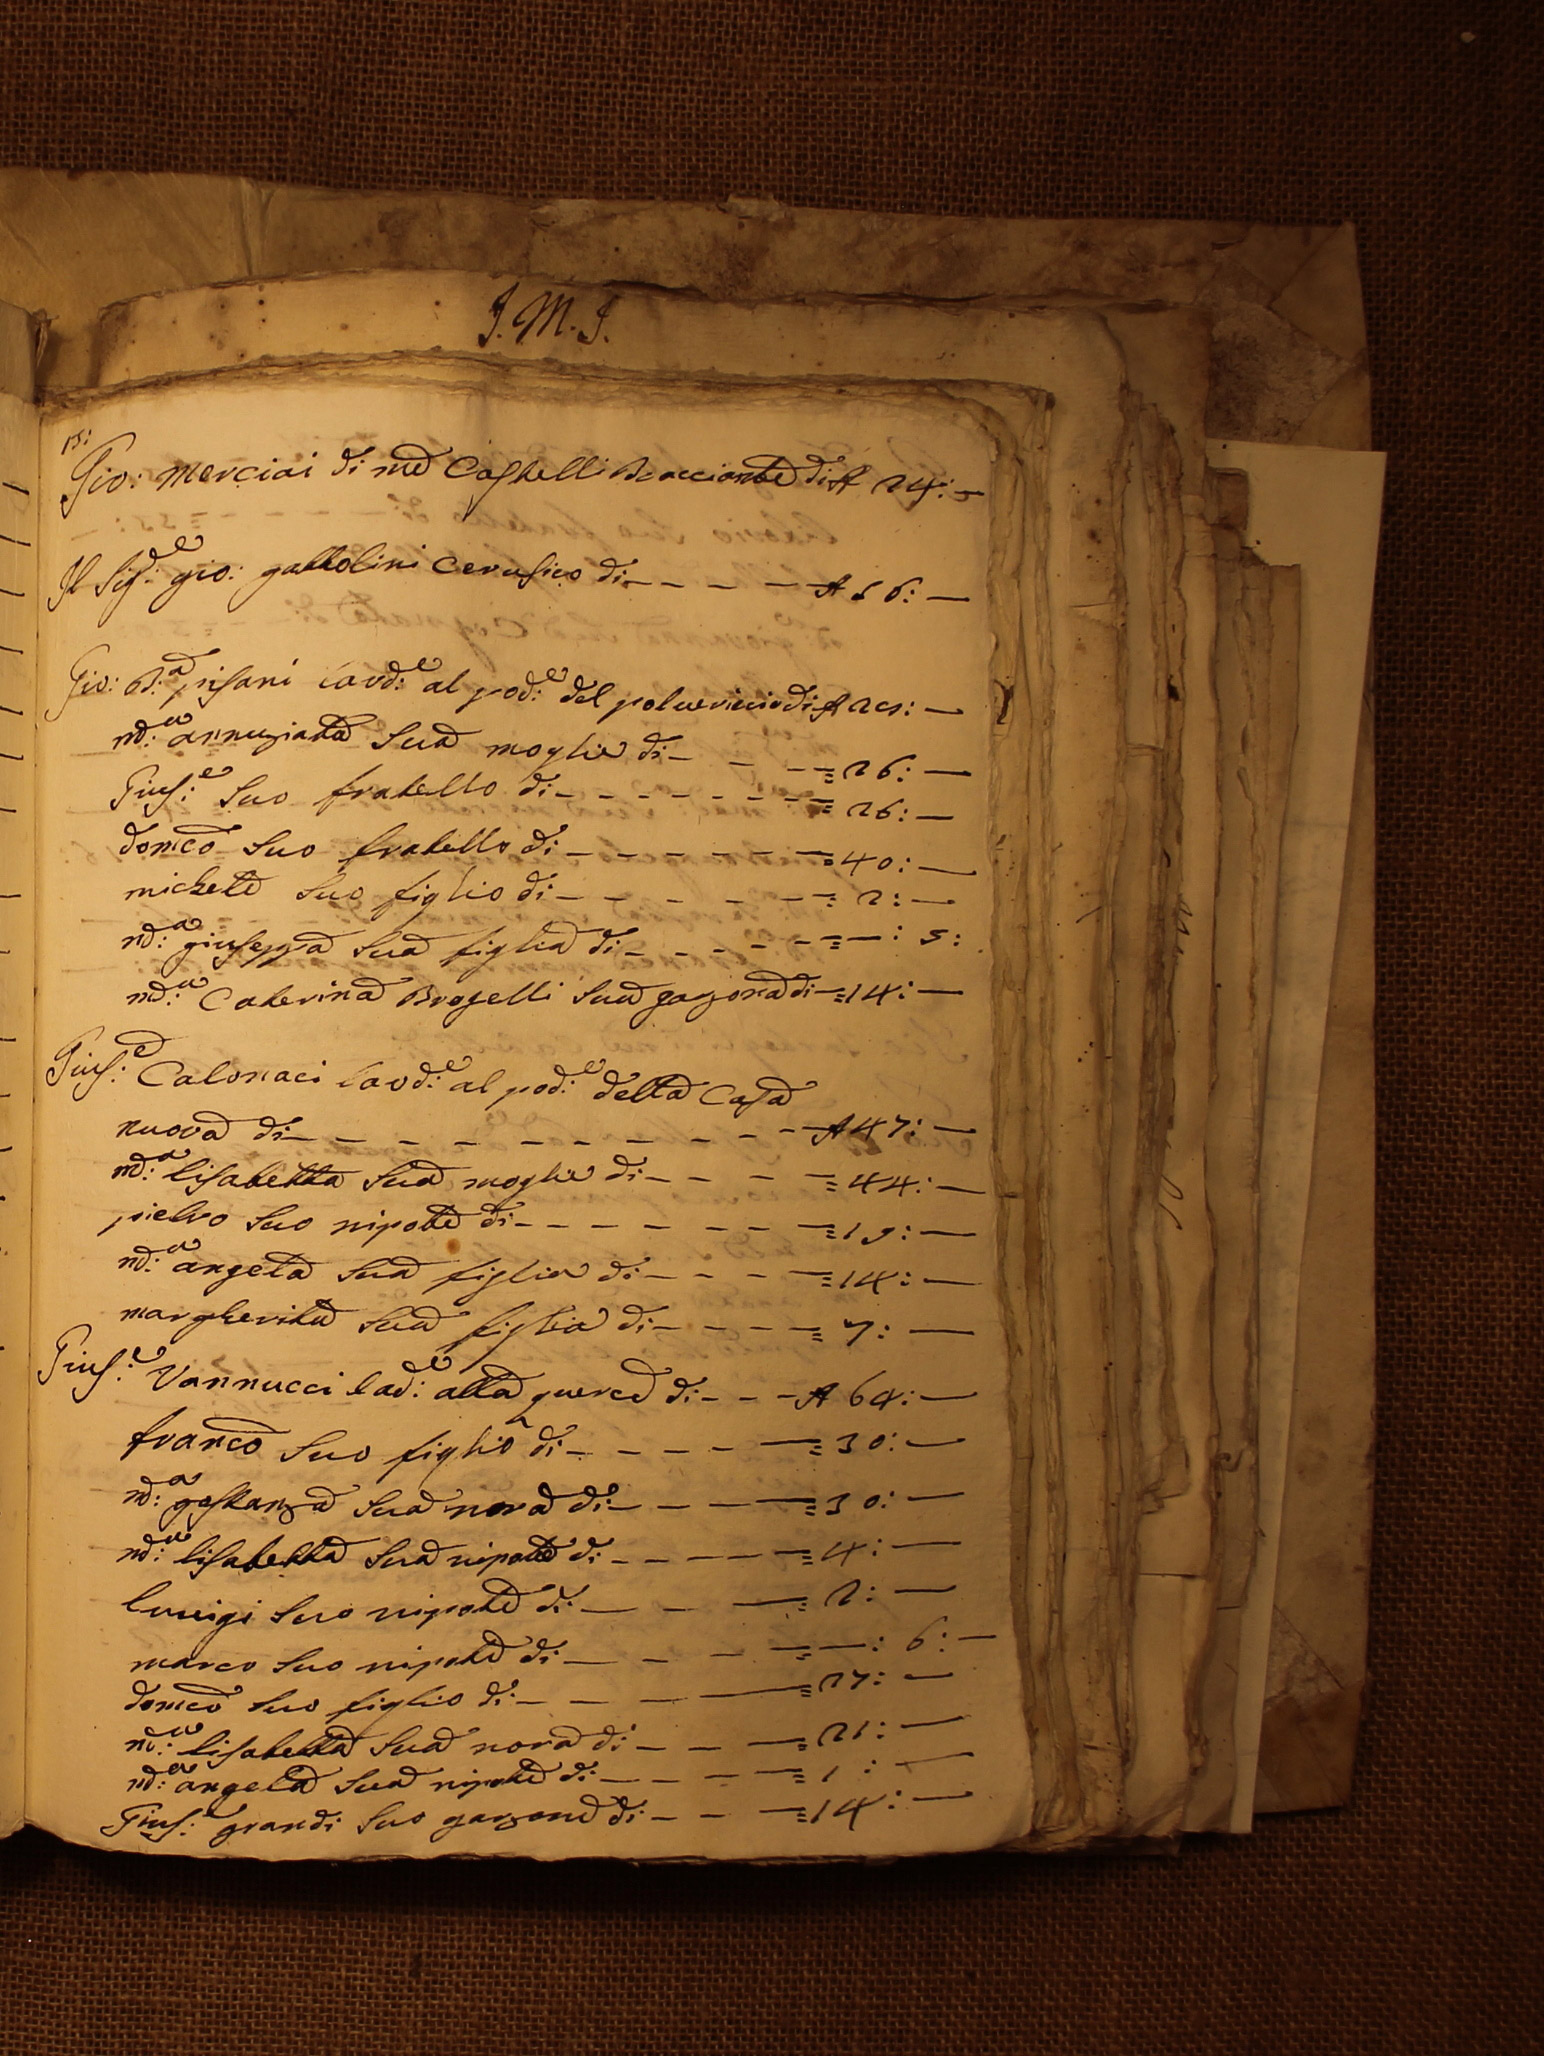 J. M. J.
15:
Gio: merciai di md Castelli Bracciante di A 24: —
Il Sig:re gio: gattolini Cerusico di — — — — A 56: —
Gio: B:a pisani lavd:e al pod:e del polvericcio di A 29: —
md:a annuziata Sua moglie di — — — = 26: —
Gius:e Suo fratello di — — — — — — = 26: —
domco Suo fratello di — — — — — — = 40: —
michele Suo figlio di — — — — — — = 2: —
md:a giuseppa Sua figlia di — — — — — = — : 5:
md:a Caterina Brogelli Sua garzona di — = 14: —
Gius:e Calonaci lavd:e al pod:e della Casa
nuova di — — — — — — — — — A 47: —
md:a lisabetta Sua moglie di — — — — = 44: —
pietro Suo nipote di — — — — — — = 19: —
md:a angela Sua figlia di — — — — = 14: —
margherita Sua figlia di — — — — = 7: —
Gius:e Vannucci lad:e alla querce di — — — A 64: —
franco Suo figlio di — — — — — = 30: —
md:a gostanza Sua nora di — — — — = 30: —
md:a lisabetta Sua nipote di — — — — = 4: —
luuigi Suo nipote di — — — = 2: —
marco Suo nipote di — — — — = — : 6: —
domco Suo figlio di — — — = 27: —
md:a lisabetta Sua nora di — — — = 21: —
md:a angela Sua nipote di — — — — = 1 : —
Gius:e grandi Suo garzone di — — — = 14: —